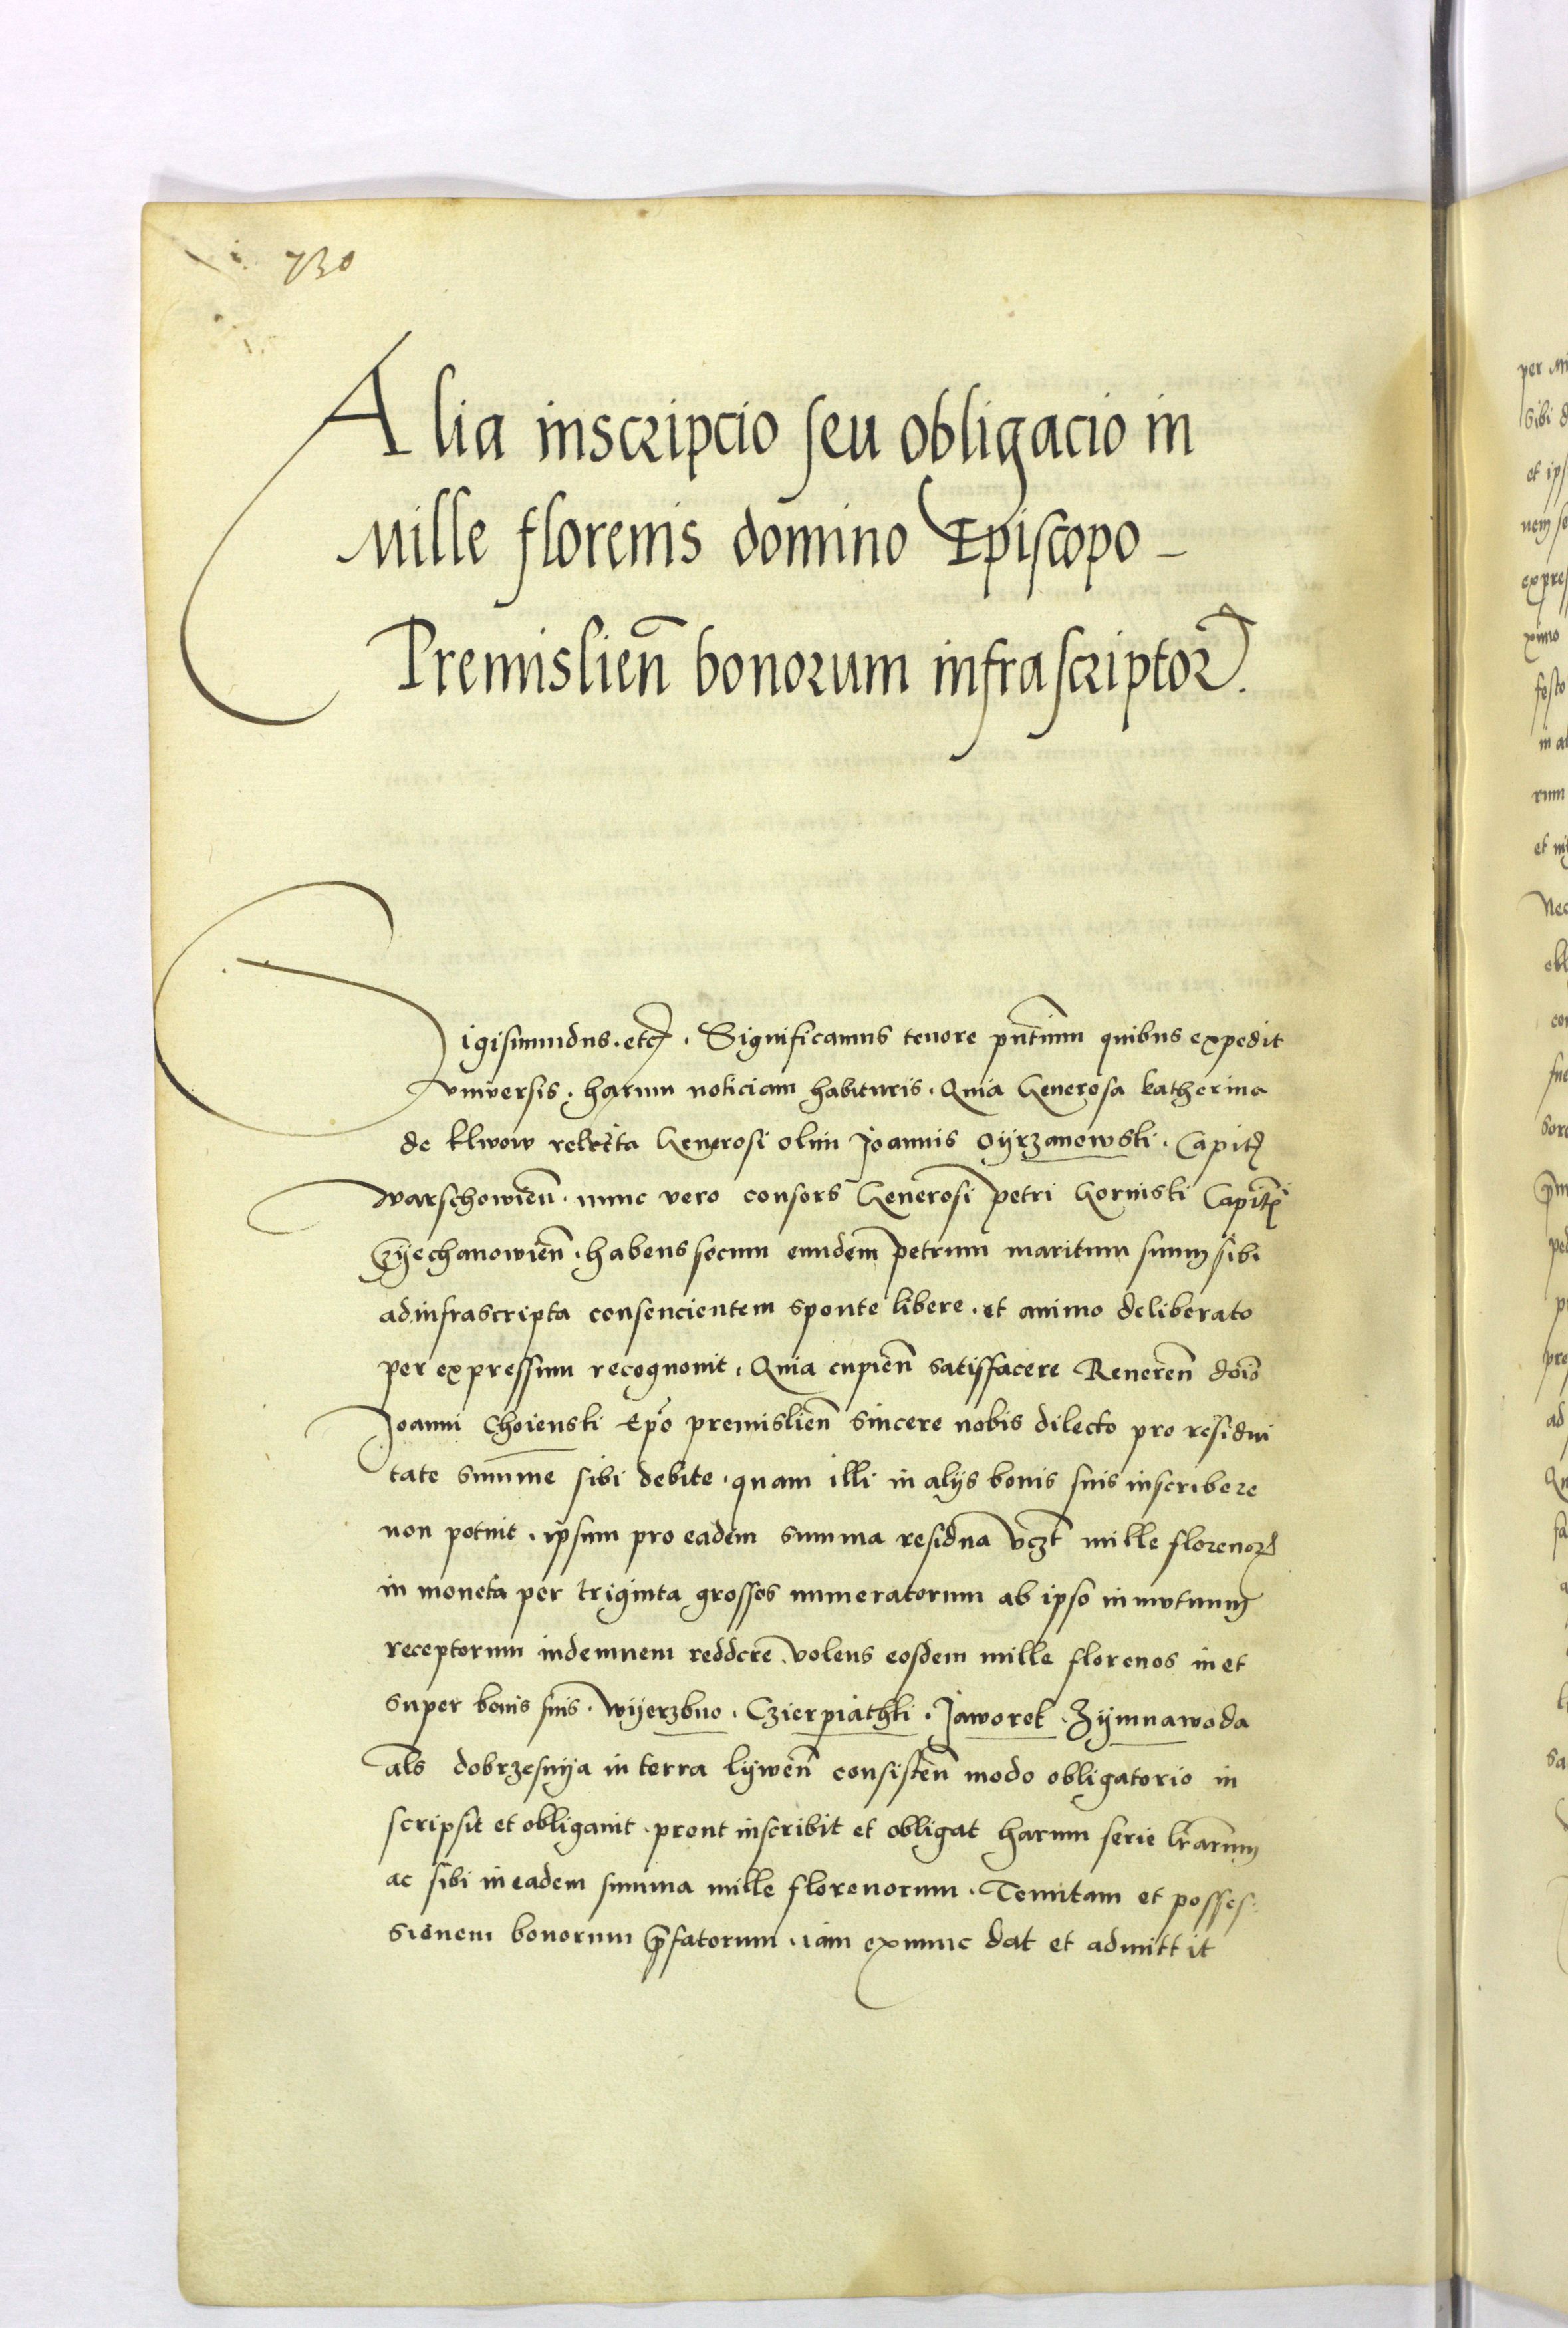 730
Alia inscripcio seu obligacio in
Mille florenis domino Episcopo -
Premislien̄ bonorum infrascriptor̄.
Sigismundus. etc. Significamus tenore pn̄tium quibus expedit
vniversis. harum noticiam habituris. Quia Generosa katherina
de klwow relicta Generosi olim Joannis Oijrzanowski. Capit̄
warschowien̄. nunc vero consors Generosi petri Gornisti Capit̄
Czijechanowien̄. habens secum eundem petrum maritum suum sibi
ad infrascripta consencientem sponte libere. et animo deliberato
per expressum recognouit. Quia cupien̄ satisfacere Reueren̄ dōīo
Joanni Choienski Ep̄o premislien̄ sincere nobis dilecto pro residui
tate summe sibi debite. quam illi in alijs bonis suis inscribere
non potuit. ipsum pro eadem summa residua vcz̄t mille florenor̄
in moneta per triginta grossos numeratorum ab ipso in mutuum
receptorum indemnem reddere volens eosdem mille florenos in et
super bonis suis. Wijerzbno. Czierpiathki. Jaworek. Zijmnawoda
al̄s dobrzesnija in terra lijwen̄ consisten̄ modo obligatorio in
scripsit et obligauit. prout inscribit et obligat harum serie lr̄arum
ac sibi in eadem summa mille florenorum. Tenutam et posses:
sionem bonorum p̄fatorum. iam exnunc dat et admittit
per
sibi
et